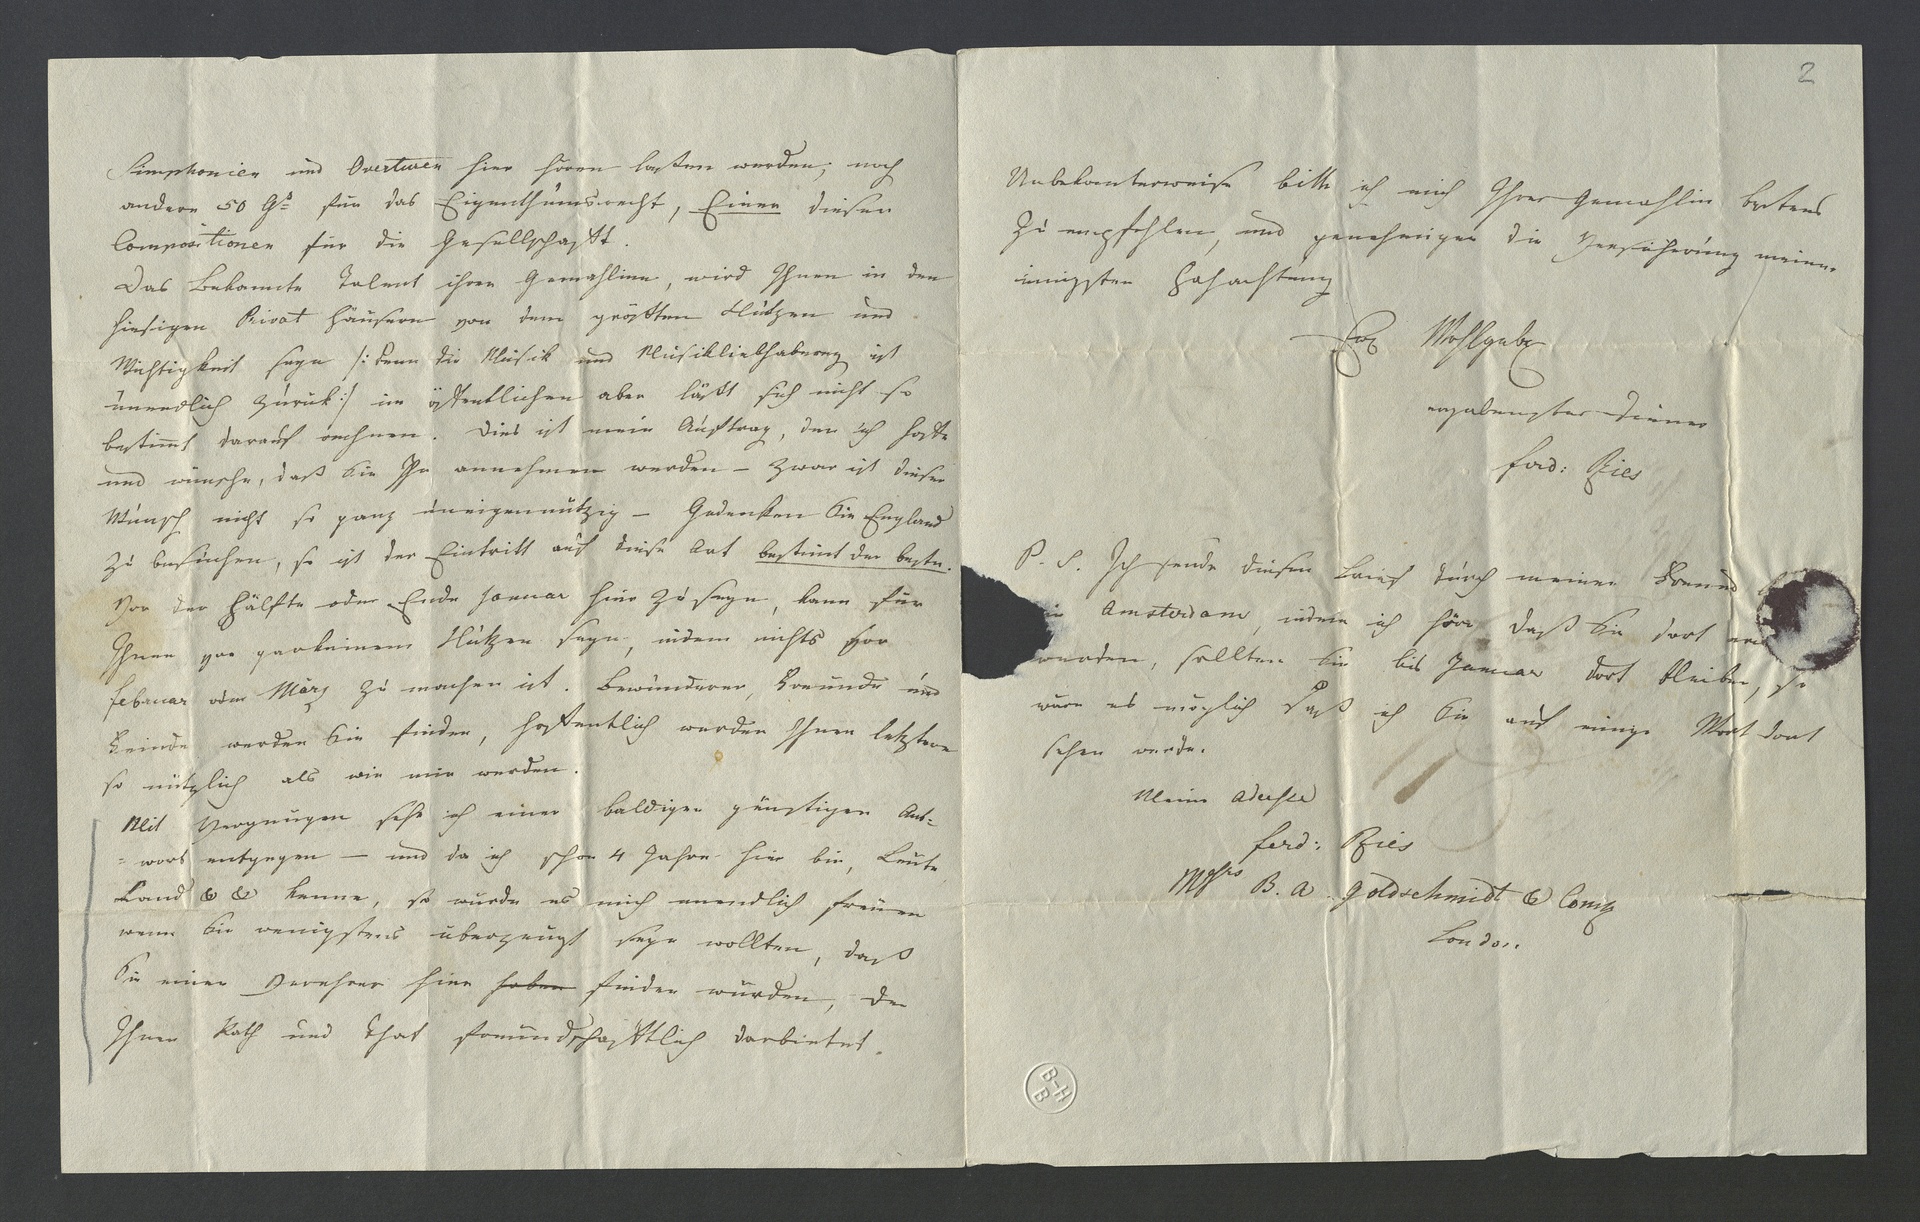 Simphonien und Overturen hier hören lassen werden; noch
andere 50 Gs für das Eigenthumsrecht, Einer dieser
Compositionen für die Gesellschafft.
Das Bekannte Talent ihrer Gemahlinn, wird Ihnen in den
hiesigen Privat Häusern von dem größten Nutzen und
Wichtigkeit seyn /: denn die Musik und Musikliebhaberey ist
unendlich zurück :/ im öffentlichen aber läßt sich nicht so
bestimt darauf rechnen. Dies ist mein Auftrag, den ich hoffe
und wünsche, daß Sie Ihn annehmen werden – zwar ist dieser
Wunsch nicht so ganz uneigennützig – Gedenken Sie England
zu besuchen, so ist der Eintritt auf diese Art bestimt der beste.
Vor der Hälfte oder Ende Januar hier zu seyn, kann für
Ihnen von garkeinem Nutzen seyn, indem nichts vor
Februar oder März zu machen ist. Bewunderer, Freunde und
Feinde werden Sie finden, hoffentlich werden Ihnen letztere
so nützlich als wie mir werden.
Mit Vergnügen sehe ich einer baldigen günstigen Ant=
=wort entgegen – und da ich schon 4 Jahre hier bin, Leute
Land & & kenne, so würde es mich unendlich freuen
wenn Sie wenigstens überzeugt seyn wollten, daß
Sie einen Verehrer hier haben finden würden, der
Ihnen Rath und That freundschafftlich darbietet.
2
Unbekanterweise bitte ich mich Ihrer Gemahlin bestens
zu empfehlen, und genehmigen die Versicherung meiner
innigsten Hochachtung
Ew Wohlgeb
ergebenster Diener
Ferd: Ries
P. S. Ich sende diesen Brief durch meinen Freund
in Amsterdam, indem ich höre daß Sie dort
werden, sollten Sie bis Januar dort bleiben, so
wäre es möglich daß ich Sie auf einige Wort dort
sehen werde.
Meine Adresse
Ferd: Ries
Messrs B. A. Goldschmidt & Comp
London.
B-H
B